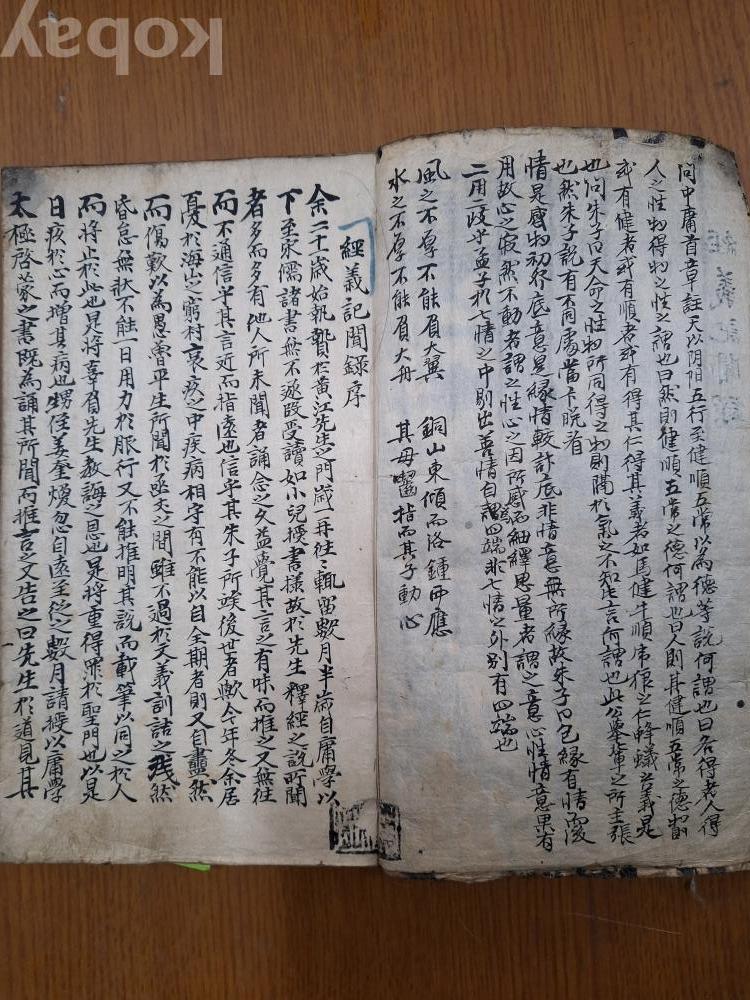 問中庸首章註天以阴阳五行至健順五常以為德等說何謂也曰各得者人得
人之性物得物之性之謂也曰然則健順五常之德何謂也曰人則其健順五常之德物
或有健者或有順者或有得其仁得其義者如馬健牛順虎狼之仁蜂蟻之義是
也問朱子曰天命之性物所同得之物則隔於氣之不知此言何謂也此公輩之所主張
也然朱子說有不同處當下脫看
情是感物初発底意是緣情較計底非情意無所緣故朱子曰必緣有情而後
用故心之寂然不動者謂之性心之因所感而紬繹思量者謂之意心性情意果有
二用二歧乎孟子於七情之中剔出善情自謂四端非七情之外別有四端也
風之不厚不能負大翼 銅山東傾而洛鍾西應
水之不厚不能負大舟 其母嚙指而其子動心
經義記聞錄序
余二十歲始執贄於黃江先生之門歲一再往往輒留數月半歲自庸學以
下至宋儒諸書無不遍改受讀如小兒授書樣故於先生釋經之說所聞
者多而多有他人所未聞者誦念之久益覺其言之有味而推之又無往
而不通信乎其言近而指遠也信乎其朱子所竢後世者歟今年冬余居
憂於海山之窮村哀疚之中疾病相守有不能以自全期者則又自盡然
而傷歎以為愚魯平生所聞於函丈之間雖不過於文義訓詁之殘然
昏怠無狀不能一日用力於服行又不能推明其說而載筆以同之於人
而將止於此也是將辜負先生教誨之恩也是將重得罪於聖門也以是
日疚於心而增其病也甥侄姜奎煥忽自遠至從之數月請授以庸學
太極啓蒙之書既為誦其所聞而推言之又告之曰先生於道見其
kobay